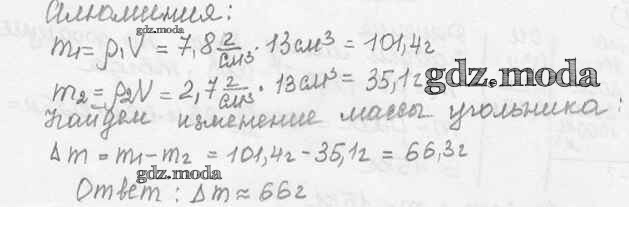 Алюминия:
gdz.moda
m₁ = ρ₁V = 7,8 г/см³ · 13см³ = 101,4г
m₂ = ρ₂V = 2,7 г/см³ · 13см³ = 35,1г
gdz.moda
gdz.moda
Найдем изменение массы угольника:
Δm = m₁ - m₂ = 101,4г - 35,1г = 66,3г
gdz.moda
Ответ: Δm ≈ 66г